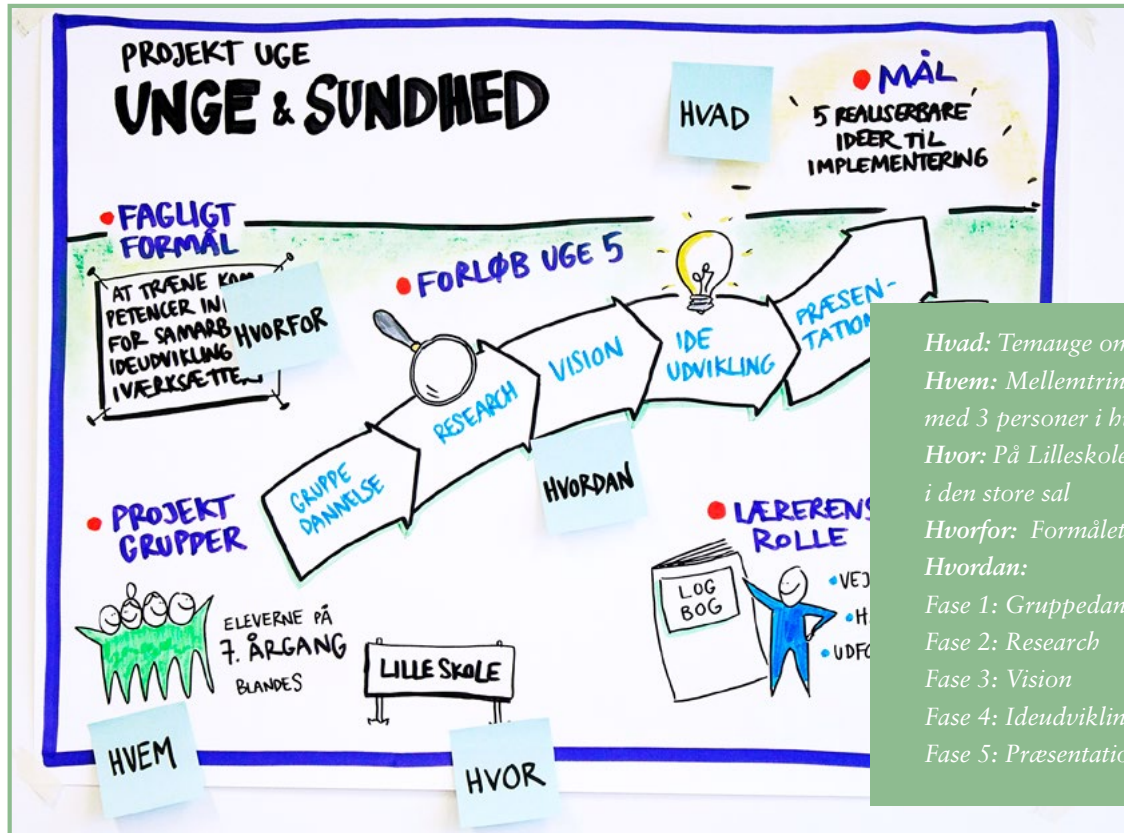 PROJEKT UGE
UNGE & SUNDHED
HVAD
MÅL
5 REALISERBARE
IDEER TIL
IMPLEMENTERING
FAGLIGT
FORMÅL
AT TRÆNE
PETENCER
FOR
IDEUDVIKLING
HVORFOR
FORLØB UGE 5
GRUPPE
DANNELSE
RESEARCH
VISION
IDE
UDVIKLING
PRÆSEN-
TATION
HVORDAN
PROJEKT
GRUPPER
ELEVERNE PÅ
7. ÅRGANG
BLANDES
LILLE SKOLE
LÆRERENS
ROLLE
LOG
BOG
HVEM
HVOR
Hvad: Temauge
Hvem:
med 3 personer i
Hvor: På
i den store sal
Hvorfor: Formålet
Hvordan:
Fase 1:
Fase 2: Research
Fase 3: Vision
Fase 4:
Fase 5: